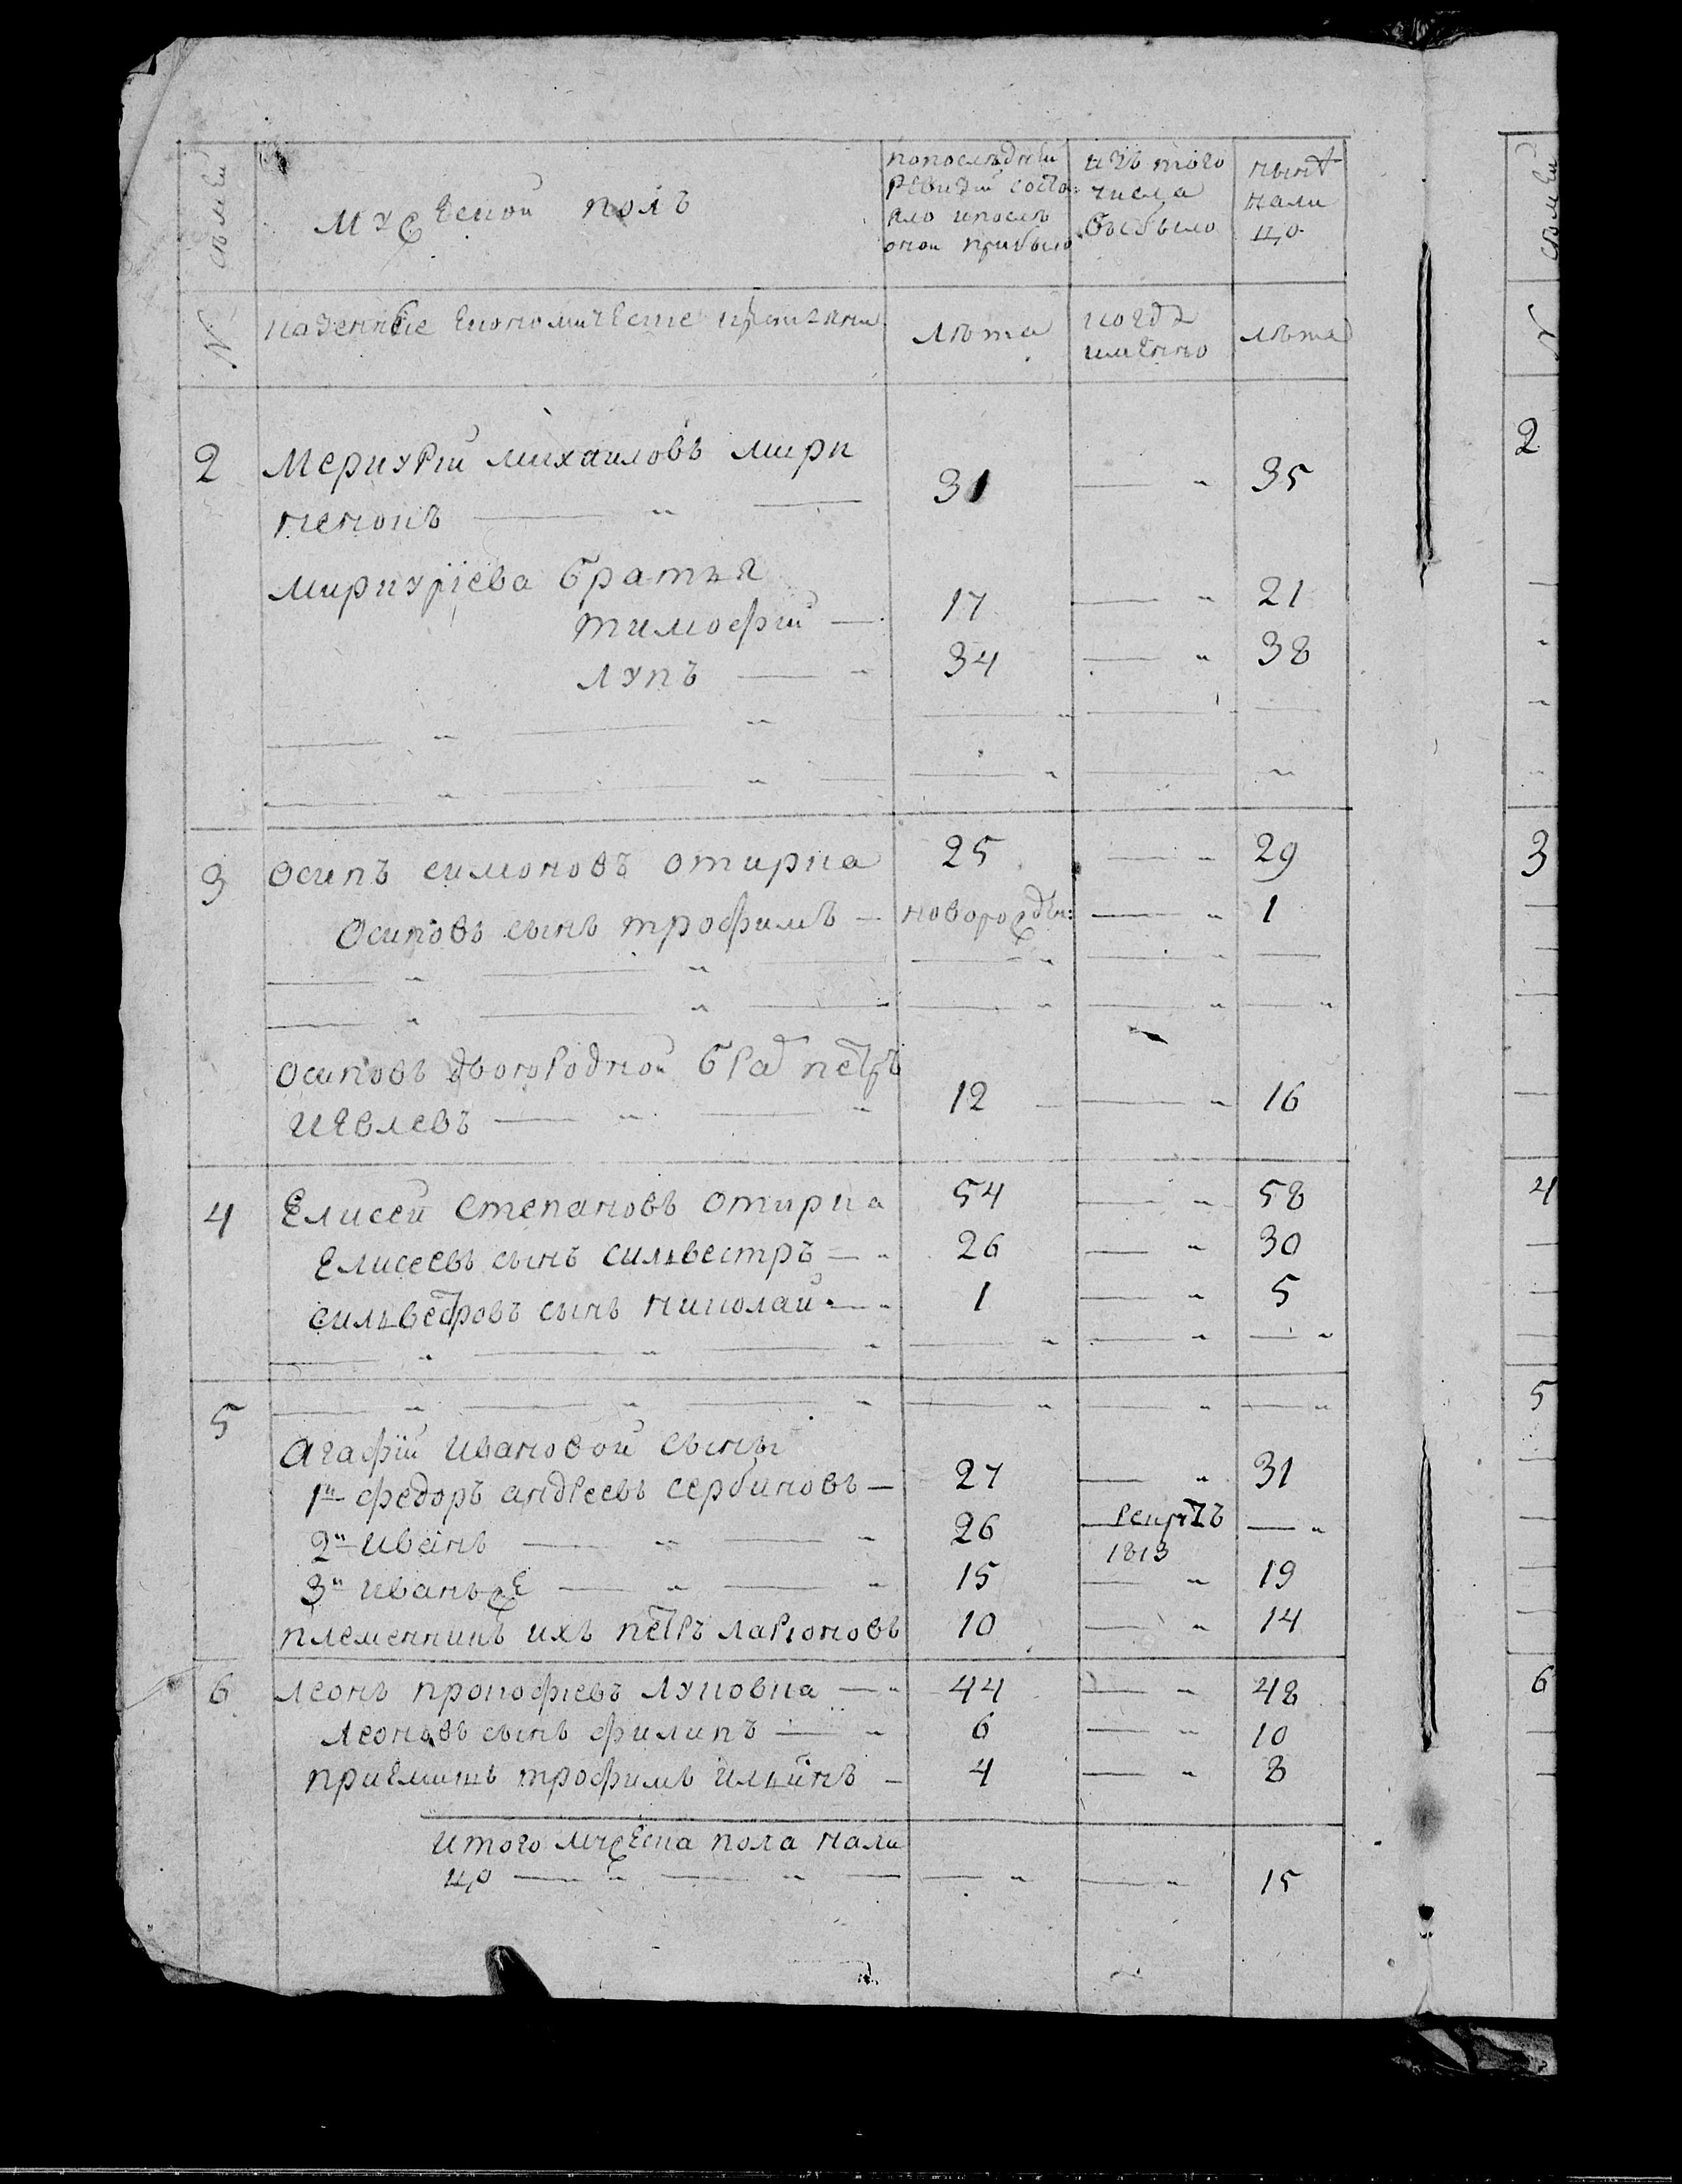 семьи
№
Мужеской полъ
попоследней
ревизіи состо:
яло ипосле
оной прибыло
изъ того
числа
выбыло
нынѣ
нали
цо
казенные Економическіе крестьяне
лѣта
когда
имянно
лѣта
2 Меркурій михаиловъ мирк
ненокъ — „ — 31 — „ 35
миркуріева братья
тимофій — 17 — „ 21
лупъ — „ 34 — „ 38
3 Осипъ симоновъ отирка 25 — „ 29
Осиповъ сынъ трофимъ — новорожден: — „ 1
осиповъ двоюродной брат петръ
иевлевъ — „ — „ 12 — „ 16
4 Елисей степановъ отирка 54 — „ 58
Елисеевъ сынъ силвестръ — „ 26 — „ 30
силвестровъ сынъ николай — „ 1 — „ 5
5
агафіи ивановой сыны
1й федоръ андреевъ сербиновъ — 27 — „ 31
2й иванъ — „ — „ 26 рекрутъ 1813 — „
3й иванъ же — „ — „ 15 — „ 19
племенникъ ихъ петръ ларіоновъ 10 — „ 14
6 леонъ прокофіевъ луковка — „ 44 — „ 48
леоновъ сынъ филипъ — „ 6 — „ 10
приемишъ трофимъ ильинъ — 4 — „ 8
итого мужеска пола нали
цо — „ — „ — — „ — „ 15
семьи
№
2
3
4
5
6